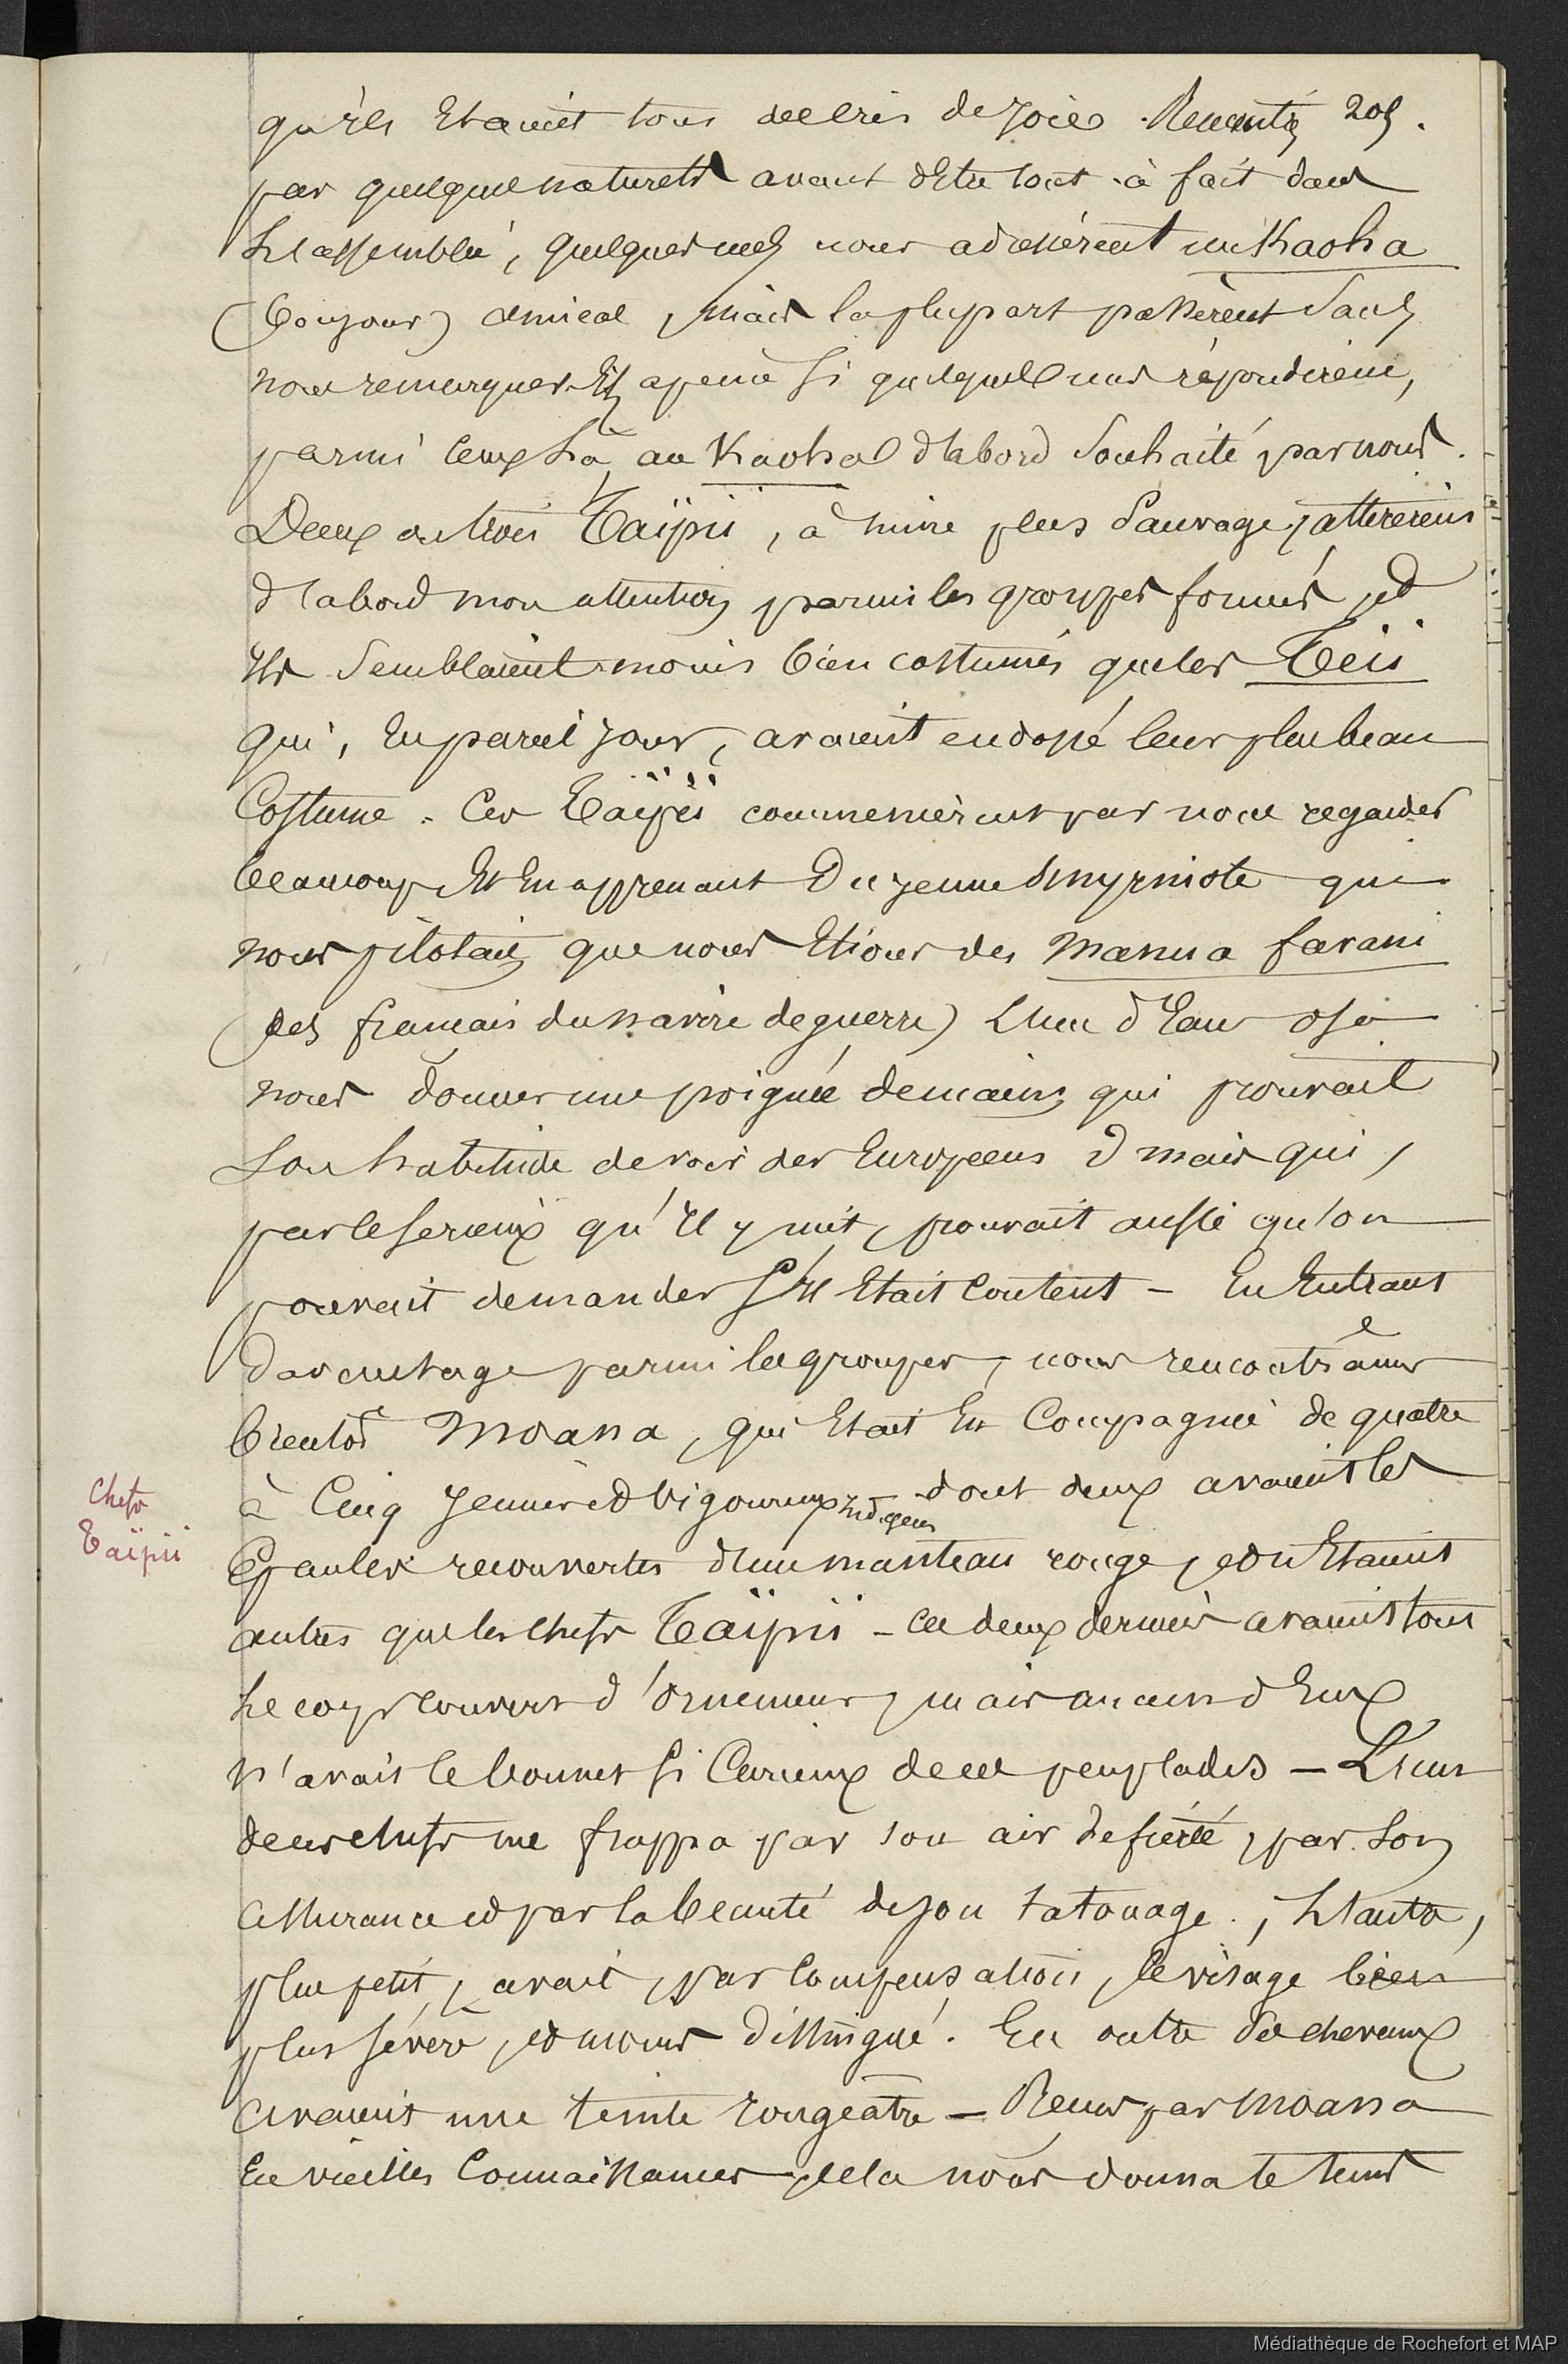 qu'ils Etaient tous des cris de joie. Rencontrés 205.
par quelques naturels avant d'Etre tout à fait dans
L'assemblée, quelques uns nous adressèrent un Kaoha
(bonjour) amical, mais la plupart passèrent sans
nous remarquer. Et apeine si quelques uns répondirent,
parmi ceux là, au Kaoha d'abord souhaité par nous.
Deux ou trois Taïpii, à mine plus sauvage, attirèrent
d'abord mon attention parmi les groupes formés, et
Ils semblaient moins bien costumés que les Teïi
qui, en pareil jour, avaient endossé leur plus beau
Costume. Ces Taïpii commencèrent par nous regarder
beaucoup Et En apprenant Du jeune Smyrniote qui
nous pilotait que nous Etions des Manua farani
(des français du navire de guerre) L'un d'Eux osa
nous donner une poignée de mains, qui prouvait
Son habitude de voir des Européens & mais qui,
par le serieux qu'Il y mit, prouvait aussi qu'on
pouvait demander s'Il Etait Content - En Entrant
davantage parmi les groupes, nous rencontrâmes
bientôt Moana, qui Etait En Compagnie de quatre
à Cinq Jeunes et Vigoureux Indigènes dont deux avaient les
Epaules recouvertes d'un manteau rouge, et n'Etaient
Chefs
Taïpii
autres que les chefs Taïpii - Ces deux derniers avaient tous
Le corps couvert d'ornements, mais aucun d'Eux
N'avait le bonnet si Curieux de ces peuplades - L'un
de ces chefs me frappa par son air de fierté, par son
assurance et par la beauté de son tatouage., L'autre,
plus petit, avait, par compensation, le visage bien
plus sévère, et moins distingué. En outre Ses cheveux
avaient une teinte rougeâtre - Reçus par Moana
En vieilles Connaissances, cela nous donna le tems
Médiathèque de Rochefort et MAP